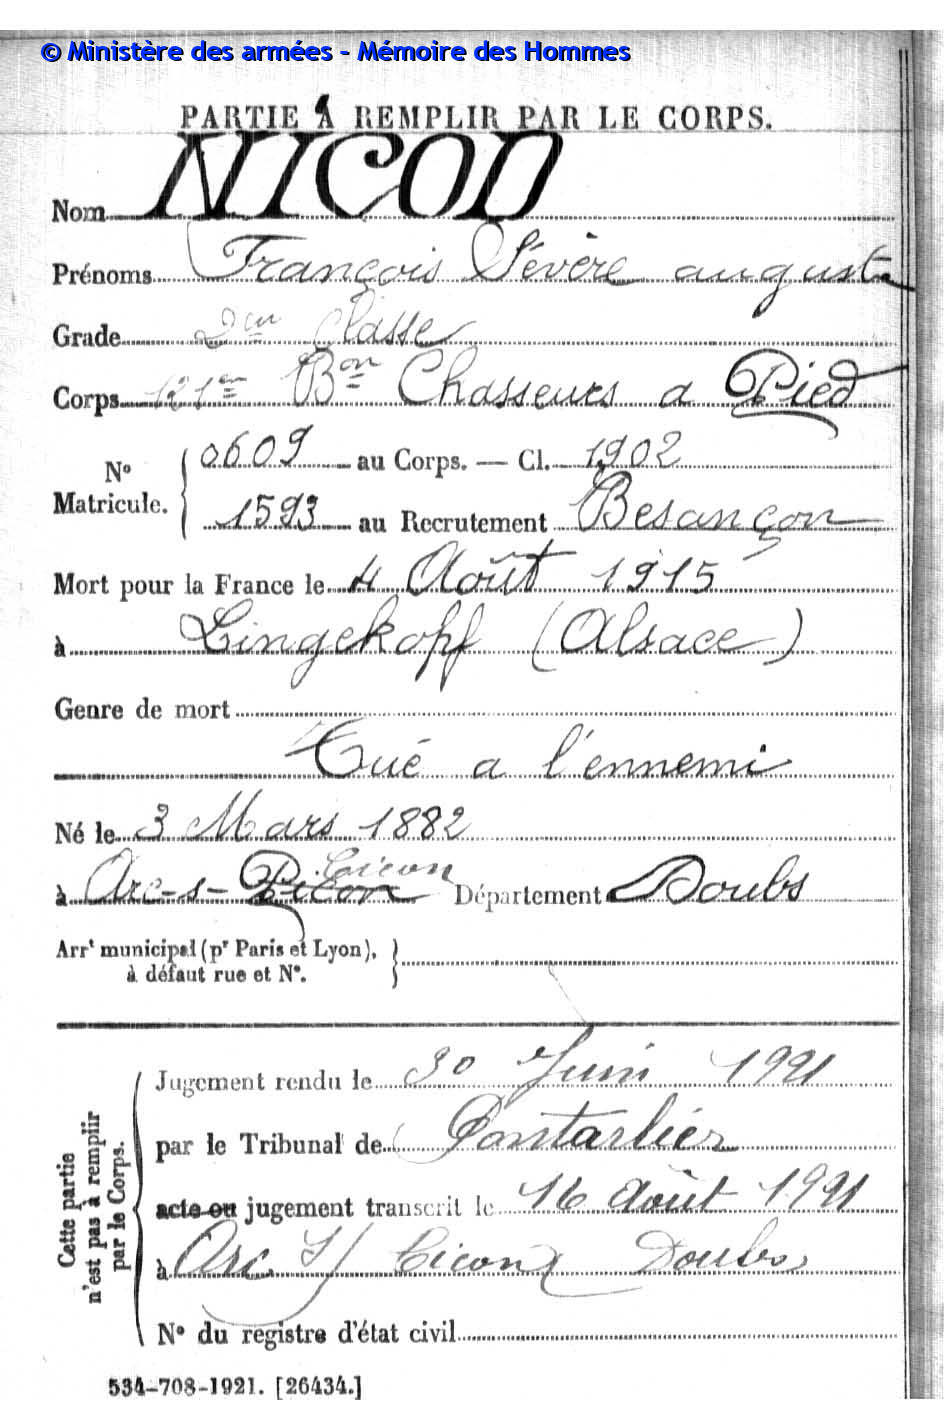 © Ministère des armées - Mémoire des Hommes
PARTIE À REMPLIR PAR LE CORPS.
Nom NICOD
Prénoms François Sévère auguste
Grade 2em Classe
Corps 121em Bon Chasseurs a Pied
0609 au Corps. — Cl. 1902
N° Matricule.
1593 au Recrutement Besançon
Mort pour la France le 4 Août 1915
à Lingekopf (Alsace)
Genre de mort
Tué a l'ennemi
Né le 3 Mars 1882
Cicon
à Arc-s-Picon Département Doubs
Arrt municipal (pr Paris et Lyon),
à défaut rue et N°.
Cette partie n'est pas à remplir par le Corps.
Jugement rendu le 30 Juin 1921
par le Tribunal de Pontarlier
acte ou jugement transcrit le 16 Août 1921
à Arc s/ Cicon Doubs
N° du registre d'état civil
534-708-1921. [26434.]